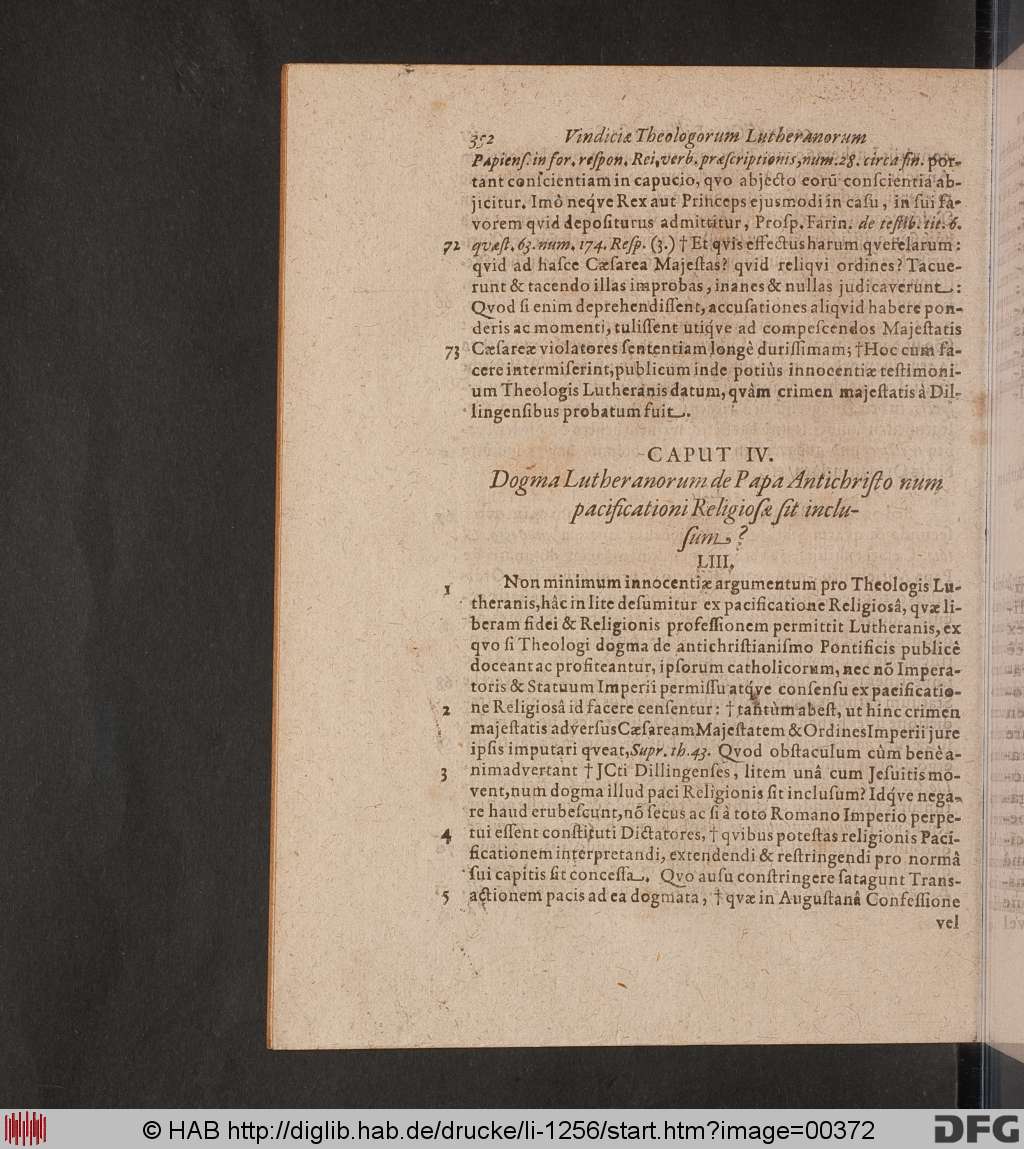 352 Vindiciæ Theologorum Lutheranorum
Papienſ. in for. reſpon. Rei, verb. præſcriptionis, num. 28. circa fin. por-
tant conſcientiam in capucio, qvo abjecto eorū conſcientia ab-
jicitur. Imò neq́ve Rex aut Princeps ejusmodi in caſu, in ſui fa-
vorem qvid depoſiturus admittitur, Proſp. Farin. de teſtib. tit. 6.
72 qvæſt. 63. num. 174. Reſp. (3.) † Et qvis effectus harum qverelarum:
qvid ad haſce Cæſarea Majeſtas? qvid reliqvi ordines? Tacue-
runt & tacendo illas improbas, inanes & nullas judicaverunt:
Qvod ſi enim deprehendiſſent, accuſationes aliqvid habere pon-
deris ac momenti, tuliſſent utiq́ve ad compeſcendos Majeſtatis
73 Cæſareæ violatores ſententiam longè duriſſimam; † Hoc cum fa-
cere intermiſerint, publicum inde potiùs innocentiæ teſtimoni-
um Theologis Lutheranis datum, qvàm crimen majeſtatis à Dil-
lingenſibus probatum fuit.
CAPUT IV.
Dogma Lutheranorum de Papa Antichriſto num
pacificationi Religioſæ ſit inclu-
ſum?
LIII.
1 Non minimum innocentiæ argumentum pro Theologis Lu-
theranis, hâc in lite deſumitur ex pacificatione Religiosâ, qvæ li-
beram fidei & Religionis profeſſionem permittit Lutheranis, ex
qvo ſi Theologi dogma de antichriſtianiſmo Pontificis publicè
doceant ac profiteantur, ipſorum catholicorum, nec nō Impera-
toris & Statuum Imperii permiſſu atq́ve conſenſu ex pacificatio-
2 ne Religiosâ id facere cenſentur: † tantùm abeſt, ut hinc crimen
majeſtatis adverſus Cæſaream Majeſtatem & Ordines Imperii jure
ipſis imputari qveat, Supr. th. 43. Qvod obſtaculum cùm benè a-
3 nimadvertant † JCti Dillingenſes, litem unâ cum Jeſuitis mo-
vent, num dogma illud paci Religionis ſit incluſum? Idq́ve nega-
re haud erubeſcunt, nō ſecus ac ſi à toto Romano Imperio perpe-
4 tui eſſent conſtituti Dictatores, † qvibus poteſtas religionis Paci-
ficationem interpretandi, extendendi & reſtringendi pro normâ
ſui capitis ſit conceſſa. Qvo auſu conſtringere ſatagunt Trans-
5 actionem pacis ad ea dogmata, † qvæ in Auguſtanâ Confeſſione
vel
© HAB http://diglib.hab.de/drucke/li-1256/start.htm?image=00372
DFG